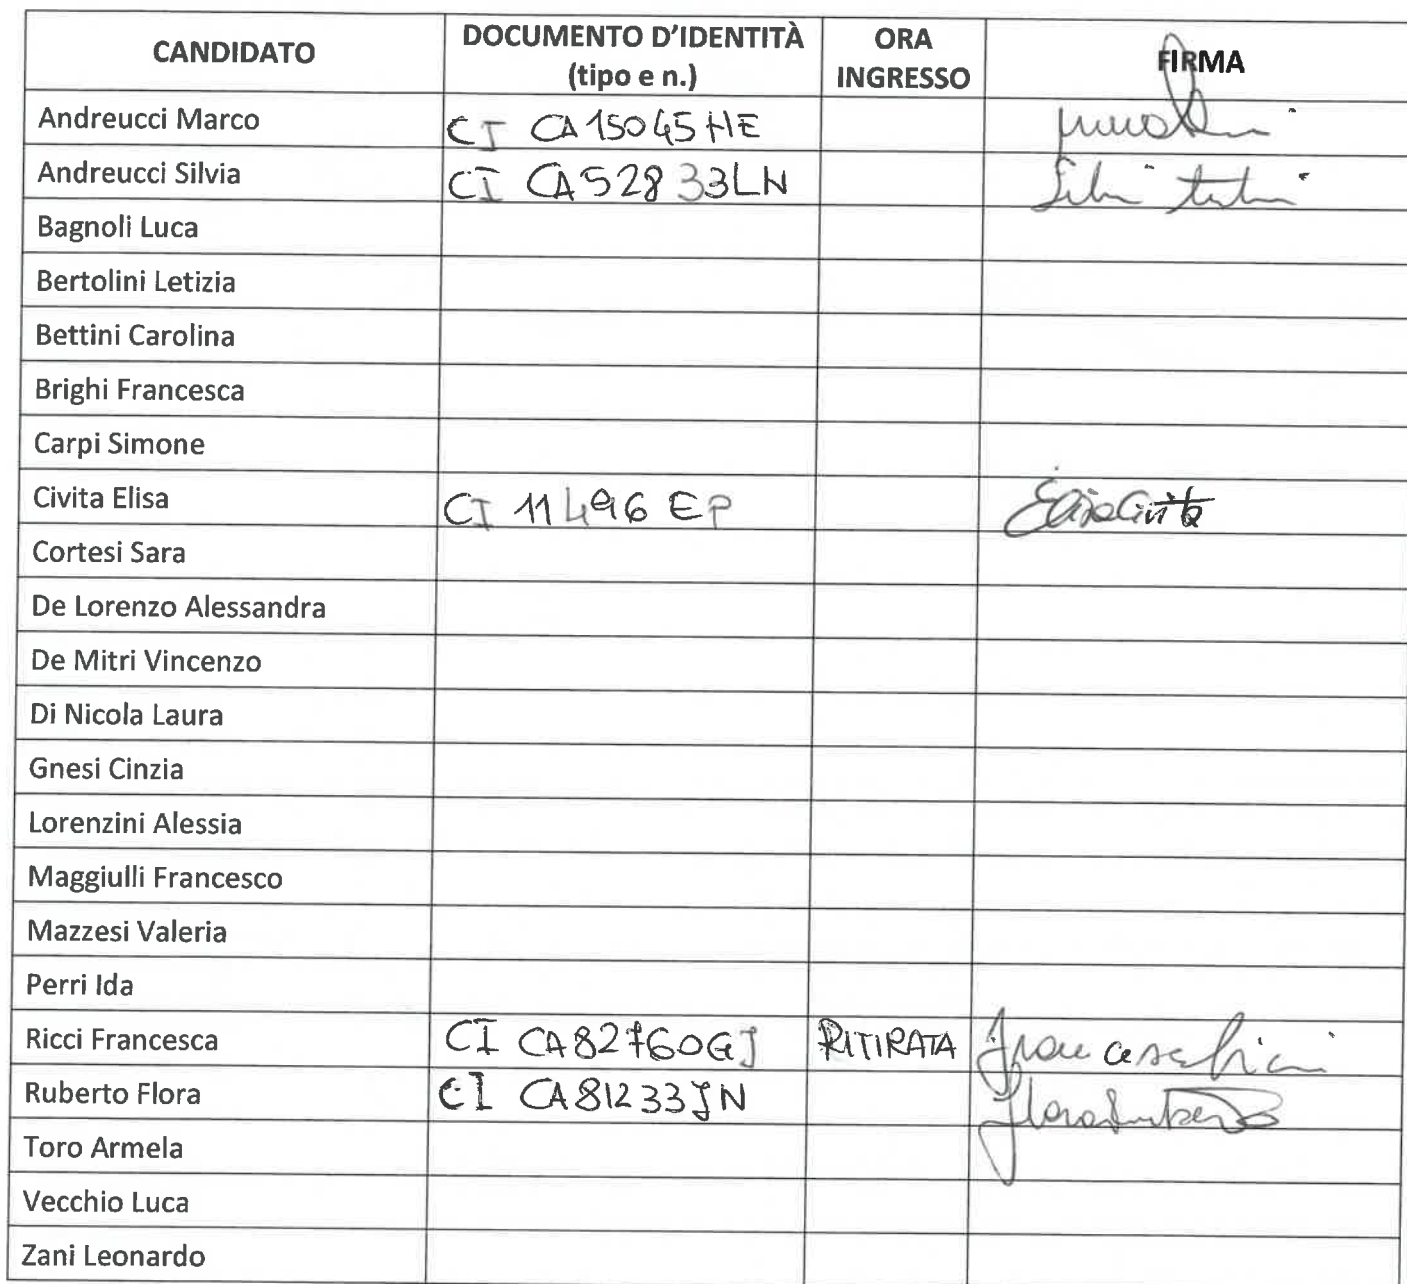 CANDIDATO DOCUMENTO D'IDENTITÀ (tipo e n.) ORA INGRESSO FIRMA
Andreucci Marco CI CA15045HE
Andreucci Silvia CI CA52833LN
Bagnoli Luca
Bertolini Letizia
Bettini Carolina
Brighi Francesca
Carpi Simone
Civita Elisa CI 11496 EP Elisa Civita
Cortesi Sara
De Lorenzo Alessandra
De Mitri Vincenzo
Di Nicola Laura
Gnesi Cinzia
Lorenzini Alessia
Maggiulli Francesco
Mazzesi Valeria
Perri Ida
Ricci Francesca CI CA82760GJ RITIRATA Francesca Ricci
Ruberto Flora CI CA81233JN Flora Ruberto
Toro Armela
Vecchio Luca
Zani Leonardo